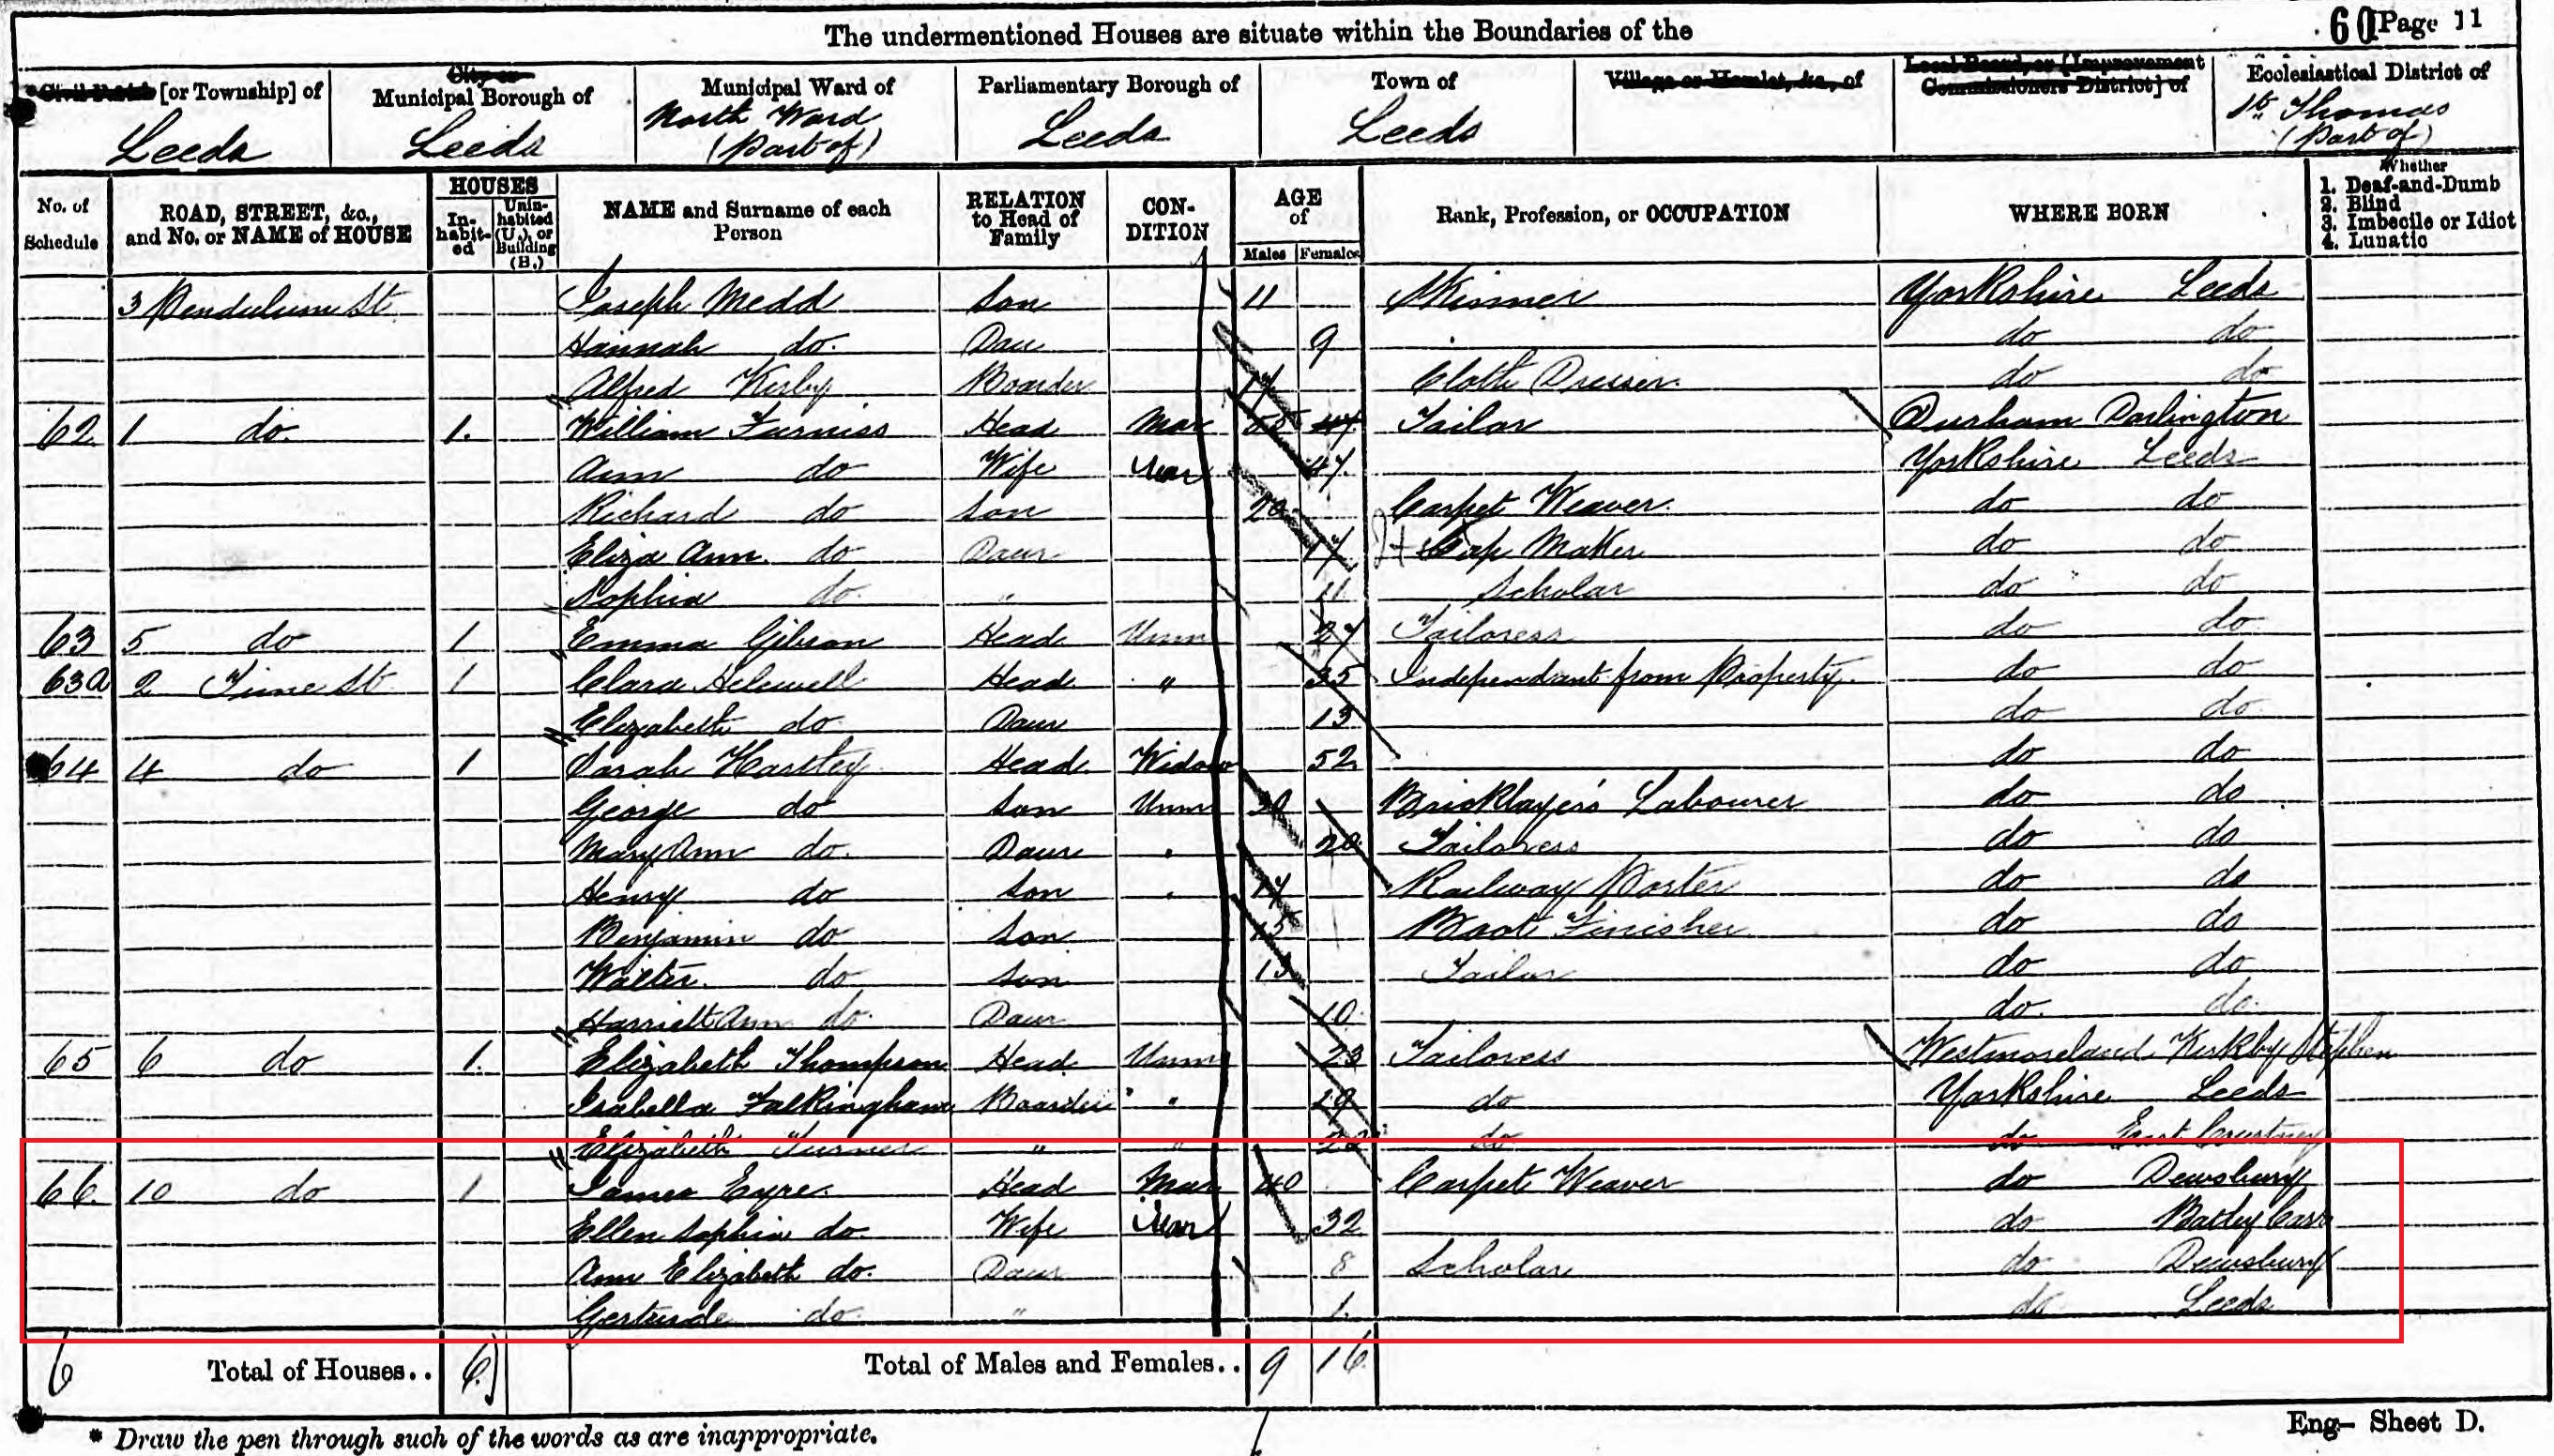 The undermentioned Houses are situate within the Boundaries of the
60 Page 11
Civil Parish [or Township] of Leeds
City or Municipal Borough of Leeds
Municipal Ward of North Ward (part of)
Parliamentary Borough of Leeds
Town of Leeds
Village or Hamlet, &c., of
Local Board, or [Improvement Commissioners District] of
Ecclesiastical District of St. Thomas (part of)
No. of Schedule
ROAD, STREET, &c., and No. or NAME of HOUSE
HOUSES
In-habit-ed
Unin-habited (U.), or Building (B.)
NAME and Surname of each Person
RELATION to Head of Family
CON-DITION
AGE of
Males Females
Rank, Profession, or OCCUPATION
WHERE BORN
Whether
1. Deaf-and-Dumb
2. Blind
3. Imbecile or Idiot
4. Lunatic
3 Pendulum St Joseph Medd Son 11 Skinner Yorkshire Leeds
Hannah do. Dau 9 do do
Alfred Kirby Boarder 17 Cloth Dresser. do do
62 1 do. 1. William Furniss Head Mar 47 Tailor Durham Darlington
Ann do Wife Mar 47 Yorkshire Leeds
Richard do Son 20 Carpet Weaver. do do
Eliza Ann. do Daur 17 Cap Maker do do
Sophia do. " 11 Scholar do do
63 5 do 1 Emma Gibson Head Unm 27 Tailoress do do
63a 2 Time St 1 Clara Helewell Head " 35 Independant from Property. do do
Elizabeth do Daur 13 do do
64 4 do 1 Sarah Hartley Head Widow 52 do do
George do Son Unm 30 Bricklayer's Labourer do do
Mary Ann do. Daur " 20 Tailoress do do
Henry do Son " 17 Railway Porter do do
Benjamin do Son 15 Boot Finisher do do
Walter do Son 13 Tailor do do
Harriett Ann do. Daur 10 do. do.
65 6 do 1. Elizabeth Thompson Head Unm 23 Tailoress Westmoreland Kirkby Stephen
Isabella Falkingham Boarder " 19 do Yorkshire Leeds
Elizabeth Turner " " 22 do do East
66. 10 do 1 James Eyre. Head Mar 40 Carpet Weaver do Dewsbury
Ellen Sophia do. Wife Mar 32 do Batley Carr
Ann Elizabeth do. Daur 8 Scholar do Dewsbury
Gertrude do. " 1. do Leeds
6 Total of Houses.. 6 Total of Males and Females.. 9 16
* Draw the pen through such of the words as are inappropriate.
Eng— Sheet D.